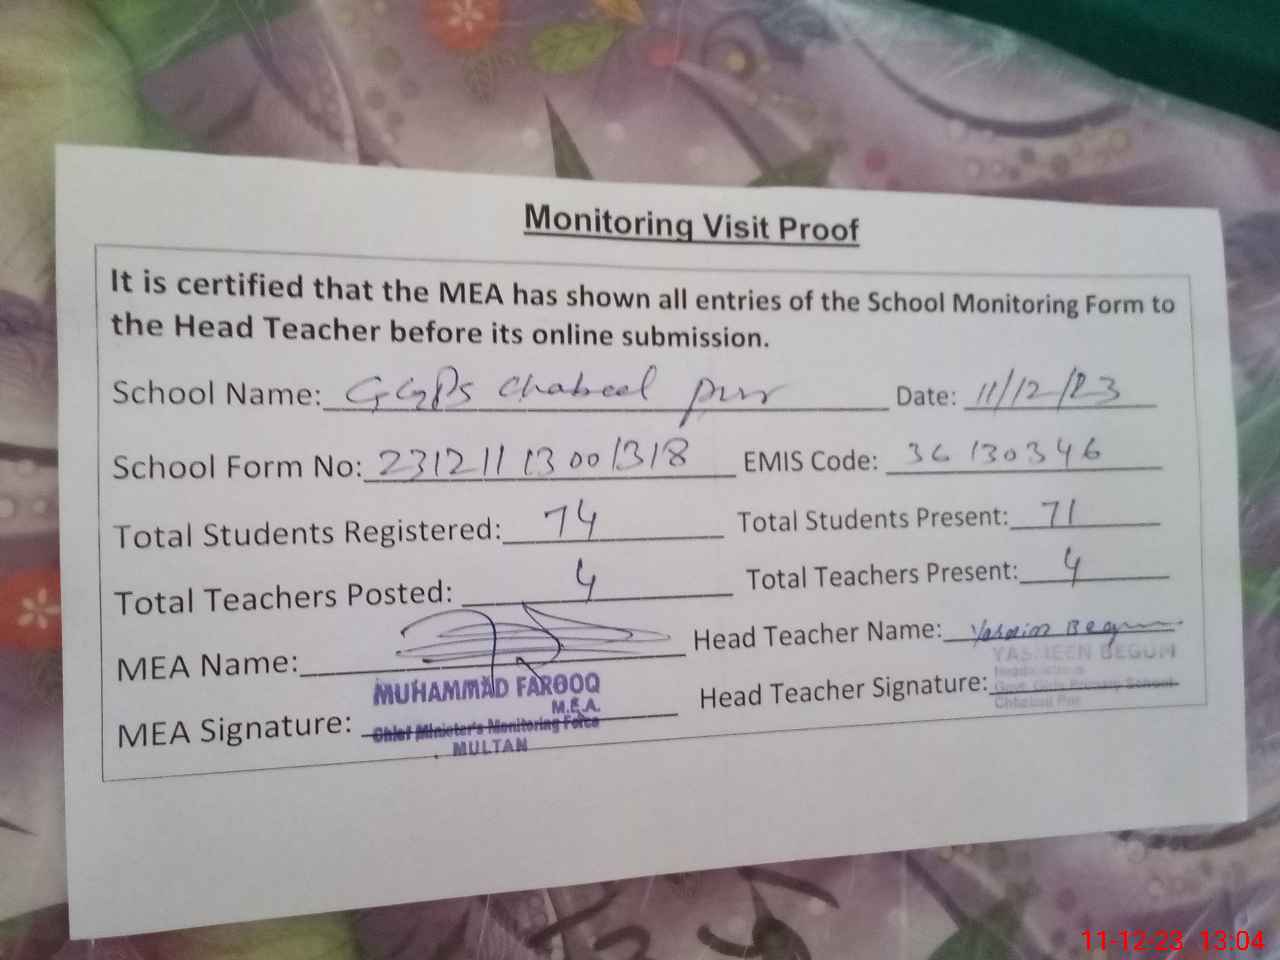 Monitoring Visit Proof
It is certified that the MEA has shown all entries of the School Monitoring Form to
the Head Teacher before its online submission.
School Name: GGPS Chabeel pur Date: 11/12/23
School Form No: 23121113001318 EMIS Code: 36130346
Total Students Registered: 74 Total Students Present: 71
Total Teachers Posted: 4 Total Teachers Present: 4
MEA Name: Head Teacher Name: Yasmin Begum
MUHAMMAD FAROOQ
M.E.A.
Chief Minister's Monitoring Force
MULTAN
MEA Signature: Head Teacher Signature:
YASMEEN BEGUM
Govt. Girls Primary School
11-12-23 13:04